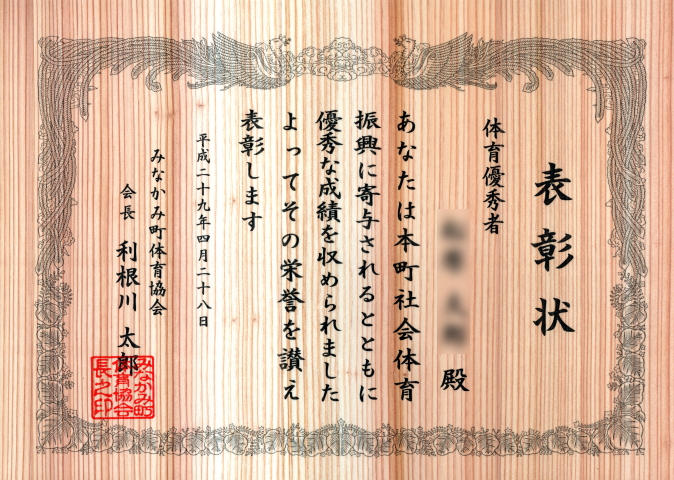 表彰状
体育優秀者
殿
あなたは本町社会体育
振興に寄与されるとともに
優秀な成績を収められました
よってその栄誉を讃え
表彰します
平成二十九年四月二十八日
みなかみ町体育協会
会長 利根川 太郎
みなかみ町
体育協会
長之印